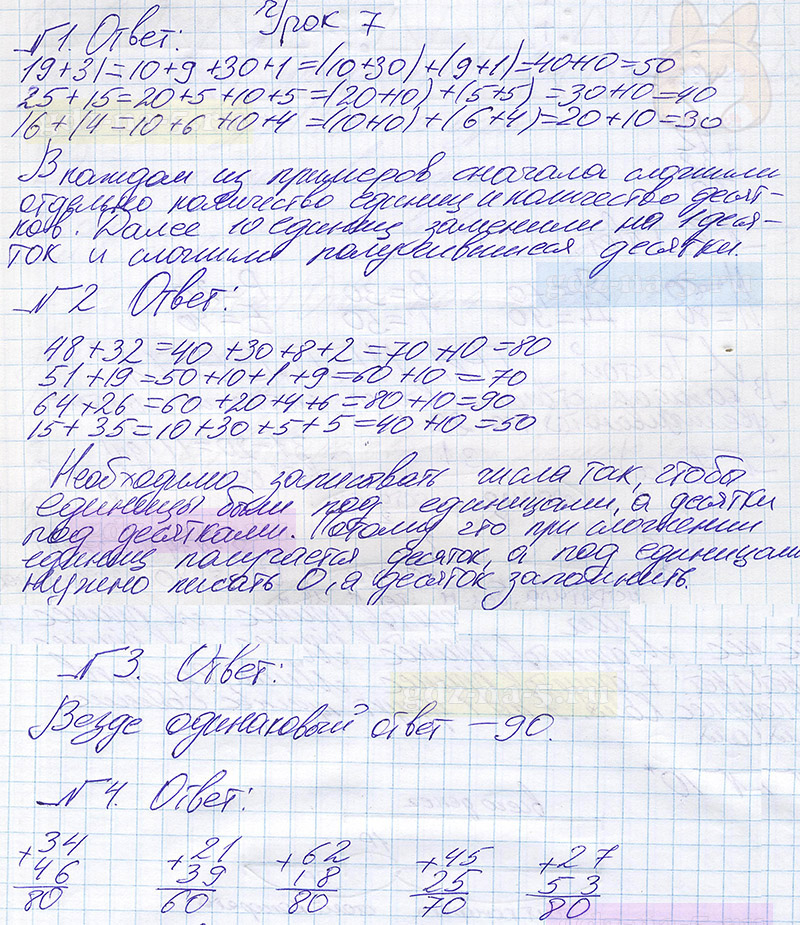 Урок 7
№1. Ответ:
19+31=10+9+30+1=(10+30)+(9+1)=40+10=50
25+15=20+5+10+5=(20+10)+(5+5)=30+10=40
16+14=10+6+10+4=(10+10)+(6+4)=20+10=30
В каждом из примеров сначала сложили
отдельно количество единиц и количество десят-
ков. Далее 10 единиц заменили на 1 деся-
ток и сложили получившиеся десятки.
№2 Ответ:
48+32=40+30+8+2=70+10=80
51+19=50+10+1+9=60+10=70
64+26=60+20+4+6=80+10=90
15+35=10+30+5+5=40+10=50
Необходимо записывать числа так, чтобы
единицы были под единицами, а десятки
под десятками. Потому что при сложении
единиц получается десяток, а под единицами
нужно писать 0, а десяток запомнить.
№3. Ответ:
Везде одинаковый ответ – 90.
№4. Ответ:
+34 +21 +62 +45 +27
46 39 18 25 53
80 60 80 70 80